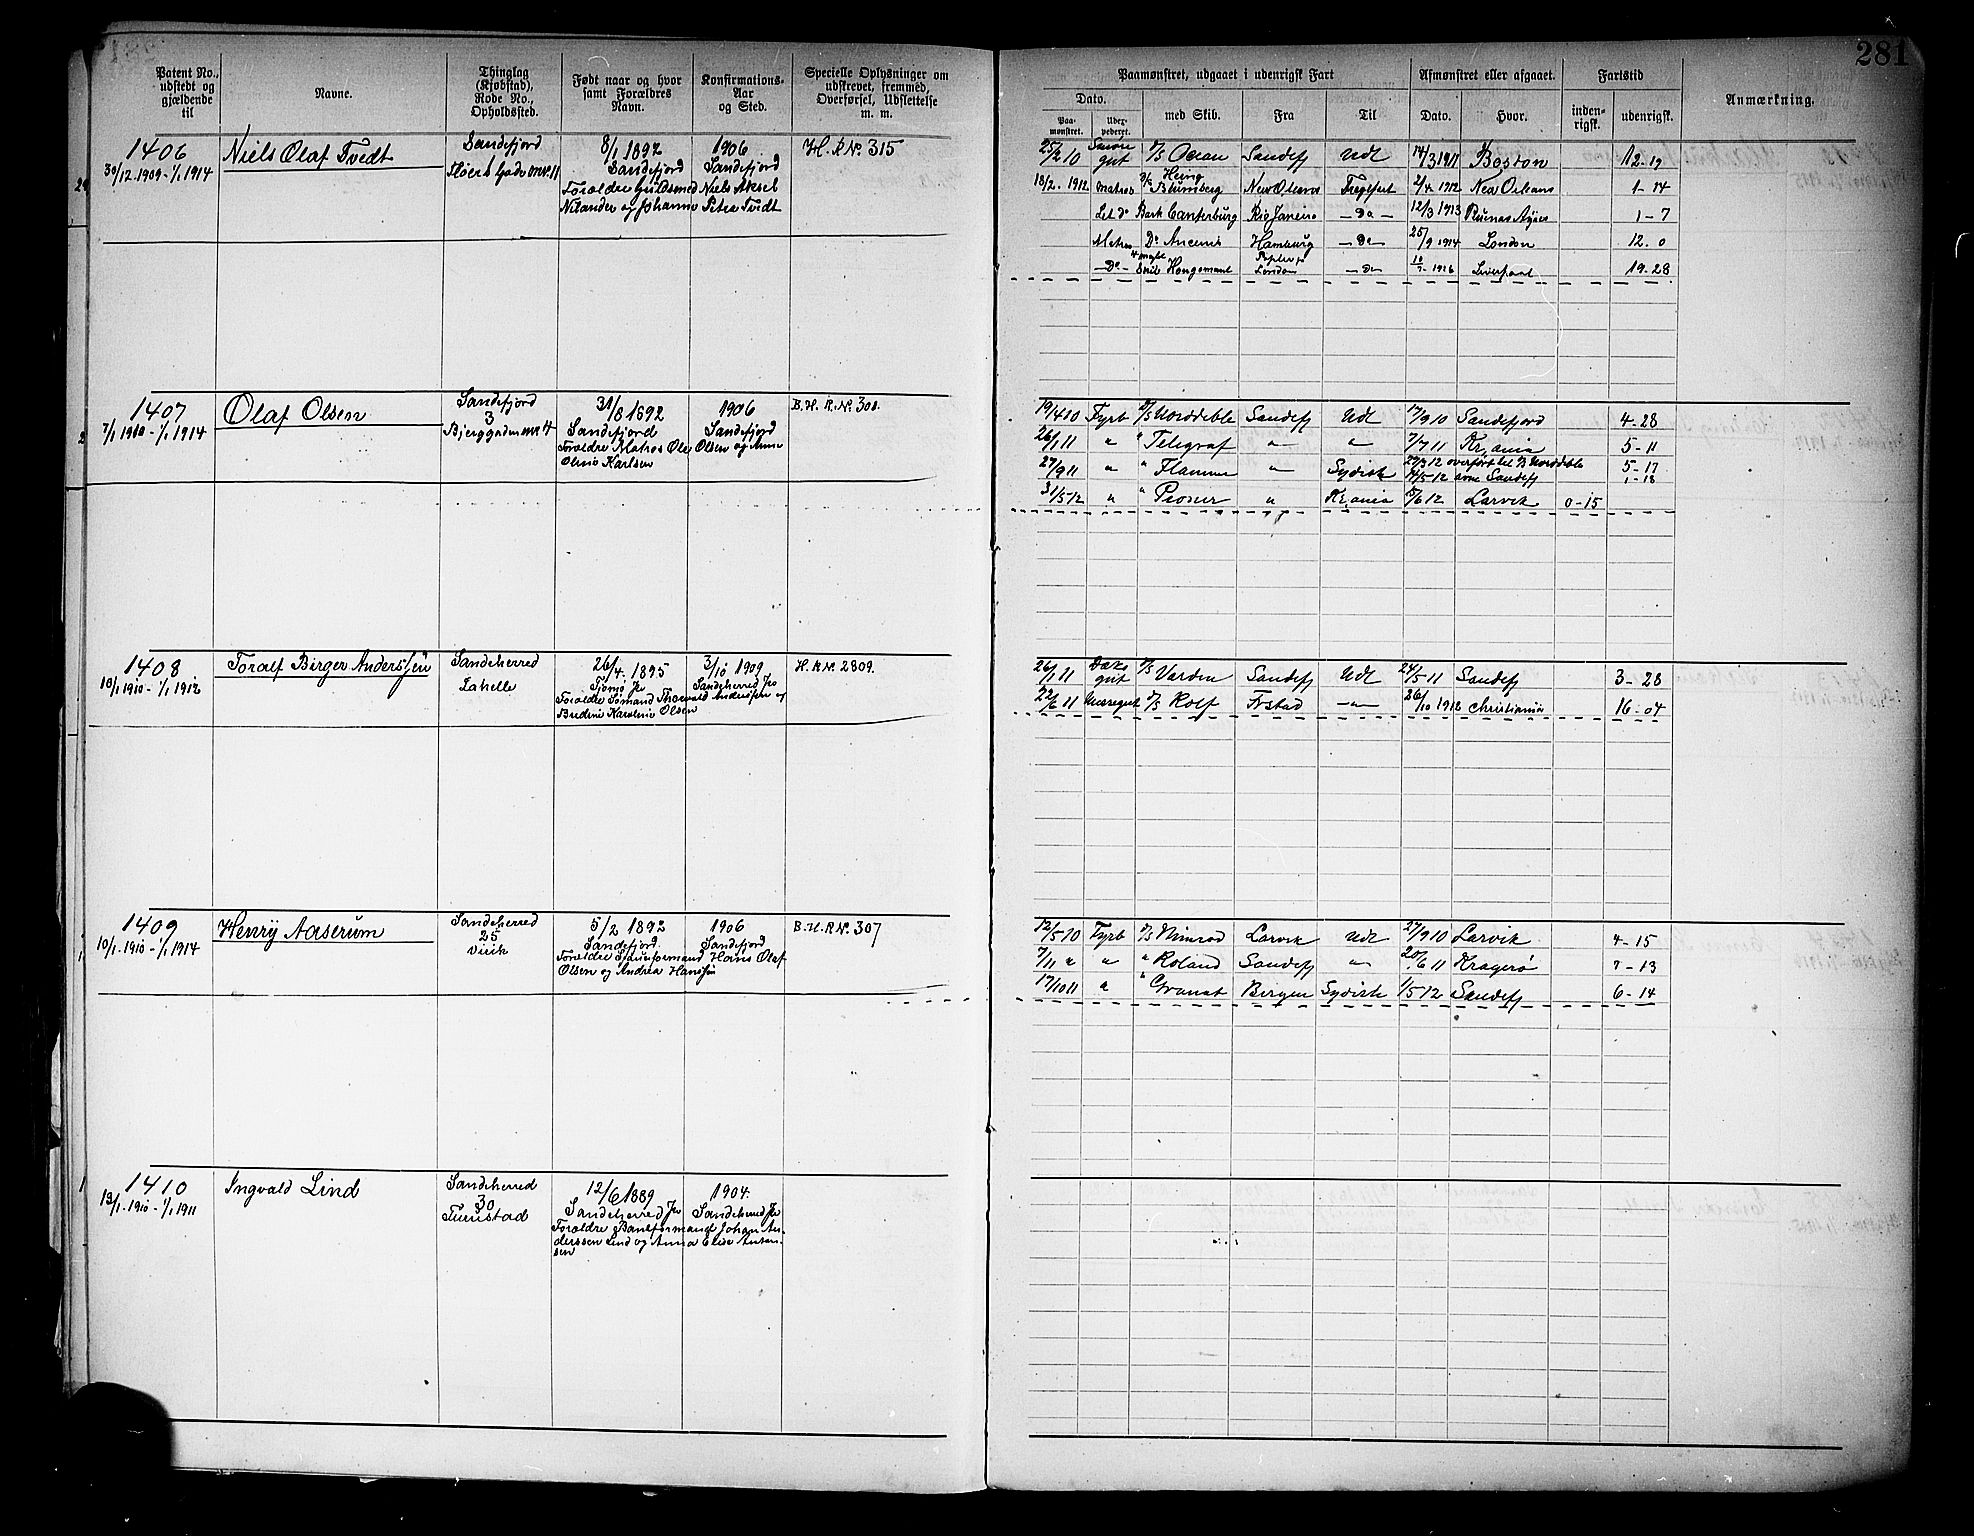 281
Patent No., udstedt og gjældende til | Navne. | Thinglag (Kjøbstad), Rode No., Opholdssted. | Født naar og hvor samt Forældres Navn. | Konfirmations-Aar og Sted. | Specielle Oplysninger om udskrevet, fremmed, Overførsel, Udslettelse m. m.
Paamønstret, udgaaet i udenrigsk Fart | Afmønstret eller afgaaet. | Fartstid | Anmærkning.
Dato. | med Skib. | Fra | Til | Dato. | Hvor. | inden-rigsk. | udenrigsk.
Paa-mønstret.
1406 | Niels Olaf Tvedt | Sandefjord | 8/1 1892 | 1906 | H. R. No. 315
30/12.1909 - 1/1 1914 | Sandefjord | Sandefjord
Forældre | Niels Aksel
Nilander og Johanne Petra Tvedt
25/2 10 | gut | D/S Ocean | Sandefj | Udl | 14/3 1911 | Boston | 12-19
18/2. 1912 | Matros | Blumberg | New Orleans | Fragtfart | 2/4 1912 | New Orleans | 1-14
Let do | Bark Canterburg | Rio Janeiro | - Do - | 12/3 1913 | Buenos Ayres | 1-7
Matros | Do | Hamburg | - Do - | 25/9 1914 | London | 12.0
- Do - | London | - Do | Liverpool | 19-28
1407 | Olaf Olsen | Sandefjord | 31/8 1892 | 1906 | B. H. R. No. 308.
7/1 1910 - 1/1 1914 | 3 | Sandefjord | Sandefjord
Bjerggaden nr 4 | Forældre Matros Ole Olsen og Anne
Olsine Karlsen
19/4 10 | Fyrb | D/S Norddeble | Sandefj | Udl | 17/9 10 | Sandefjord | 4-28
26/1 11 | " | " Telegraf | " | " | 7/7 11 | Kr,ania | 5-11
27/9 11 | " | " Flamme | " | Sydisk | 27/3 12 overført til D/S Norddeble | 5-17
14/5 12 | Sandefj | 1-18
31/5 12 | " | " Pioner | " | Kr,ania | 15/6 12 | Larvik | 0-15
1408 | Toralf Birger Anderssen | Sandeherred | 26/4. 1895 | 3/10 1909 | H. R No. 2809.
10/1 1910 - 1/1 1912 | Lahelle | Tjømø | Sandeherred
Forældre Sømand Thorvald Anderssen og
Bredine Karoline Olsen
26/1 11 | Dæks gut | D/S Varden | Sandefj | Udl | 24/5 11 | Sandefj | 3-28
22/6 11 | Messegut | D/S Rolf | Frstad | " | 26/10 1912 | Christiania | 16-04
1409 | Henry Aaserum | Sandeherred | 5/2 1892 | 1906 | B. H. R No. 307
10/1.1910 - 1/1 1914 | 25 | Sandefjord. | Sandefjord
Virik | Forældre | Hans Olaf
Olsen og Andrea Hanssen
12/5 10 | Fyrb | D/S Nimrod | Larvik | Udl | 27/9 10 | Larvik | 4-15
7/11 " | " | " Roland | Sandefj | " | 20/6 11 | Kragerø | 7-13
17/10 11 | " | " Granat | Bergen | Sydisk | 1/5 12 | Sandefj | 6-14
1410 | Ingvald Lind | Sandeherred | 12/6 1889 | 1904.
13/1.1910 - 1/1 1911 | 30 | Sandeherred | Sandeherred
Forældre Baneformand Johan An-
derssen Lind og Anna Elise Anton-
sen